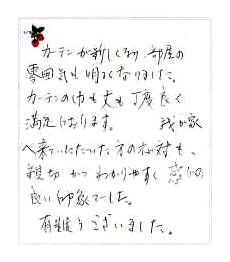 カーテンが新しくなり、部屋の
雰囲気も明るくなりました。
カーテンの巾も丈も丁度良く
満足しております。 我が家
へ来ていただいた方の応対も、
親切 かつ わかりやすく 感じの
良い印象でした。
有難うございました。